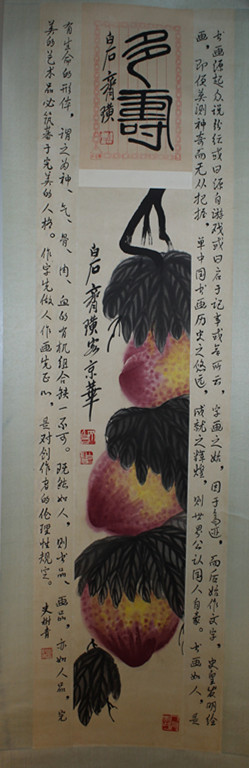 多壽
白石 齊璜
书画源起众说纷纭或曰源自游戏或曰启于记事或者所云,字画之始,因于鸟迹,而后始作文字,史皇发明绘
画,即便莫测神奇而无从把握,单中国书画历史之悠远,成就之辉煌,则世界公认国人自豪。书画如人,是
白石齊璜客京華
有生命的形体,谓之为神、气、骨、肉、血的有机组合缺一不可。既然如人,则书品、画品,亦如人品,完
美的艺术品必筑基于完美的人格。作字先做人作画先正心,是对创作者的伦理性规定。
史树青